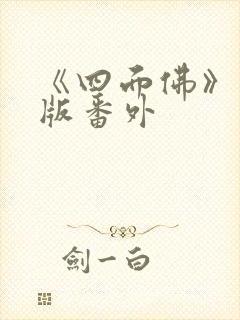 《四面佛》
版番外
剑一白